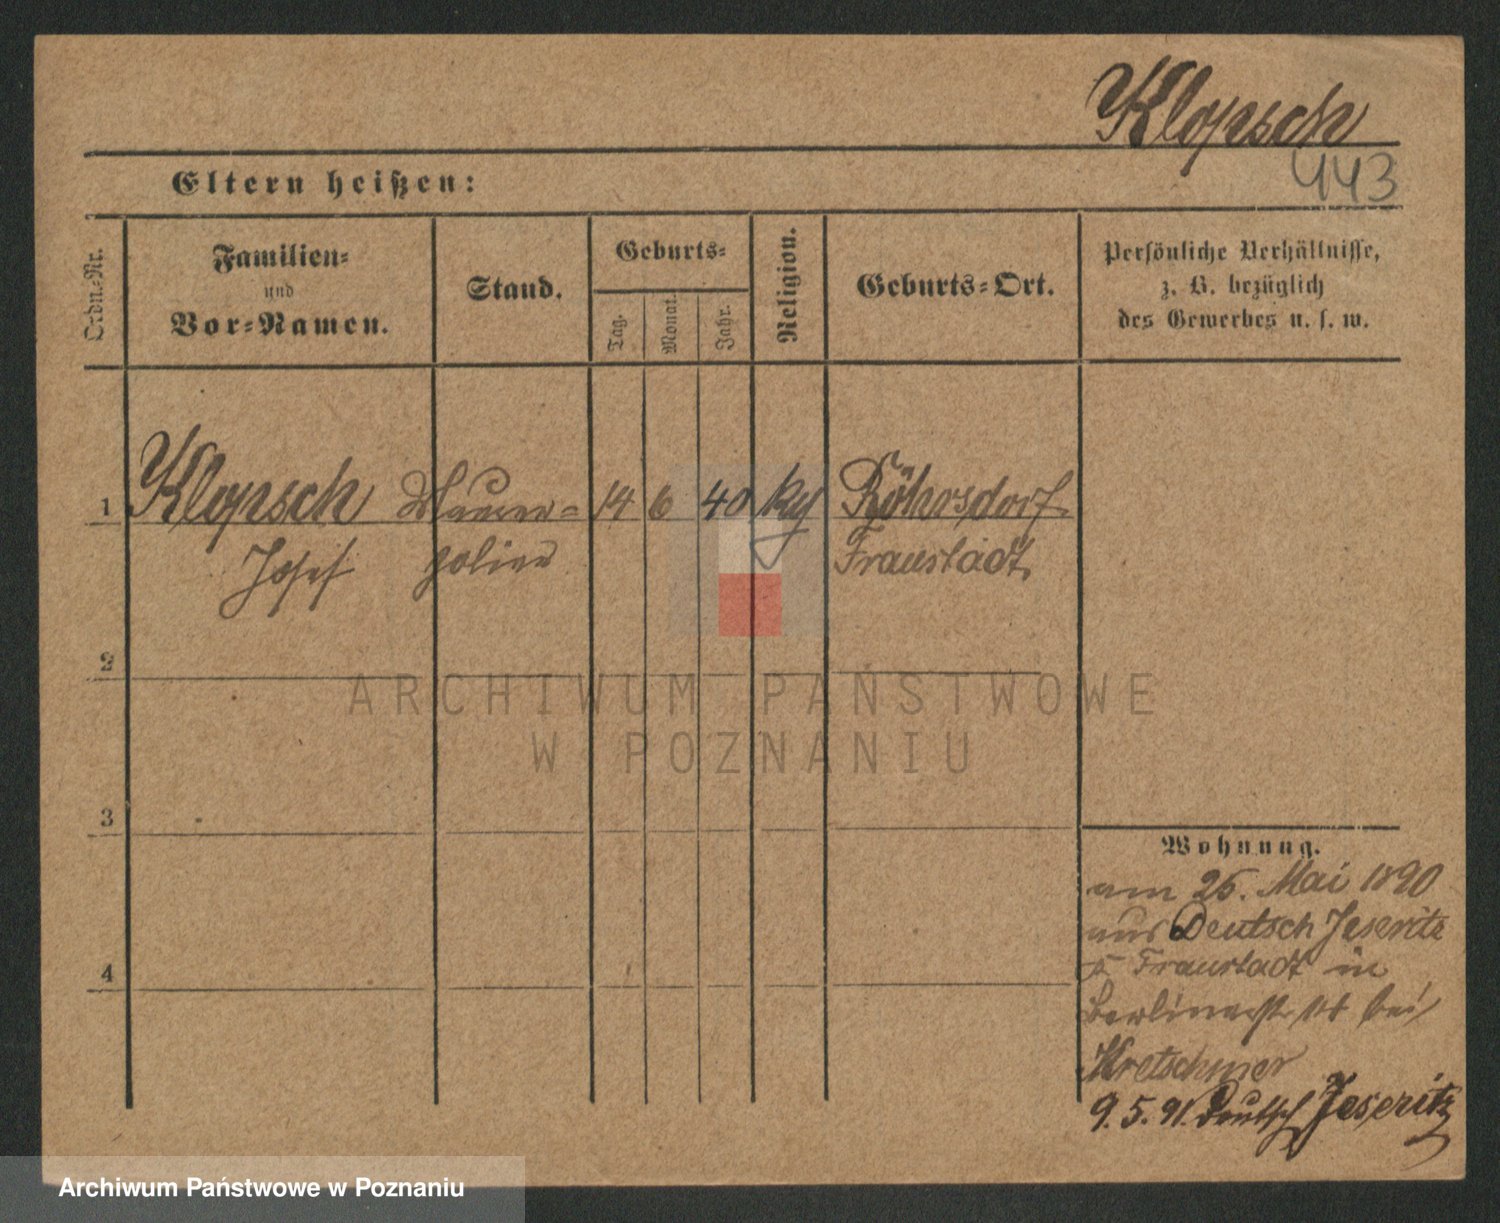 Klopsch
443
Eltern heißen:
Ordn.-Nr.
Familien-
und
Vor-Namen.
Stand.
Geburts-
Tag.
Monat.
Jahr.
Religion.
Geburts-Ort.
Persönliche Verhältnisse,
z. B. bezüglich
des Gewerbes u. s. w.
1 Klopsch Maurer- 14 6 40 Röhrsdorf
Josef polier Fraustadt
2
ARCHIWUM PAŃSTWOWE
W POZNANIU
3
4
Wohnung.
am 26. Mai 1890
aus Deutsch Jeseritz
Fraustadt in
Berlinerstr bei
Kretschmer
9. 5. 91. Deutsch Jeseritz
Archiwum Państwowe w Poznaniu